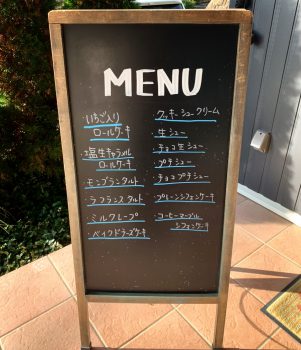 MENU
・いちご入り
ロールケーキ
・塩生キャラメル
ロールケーキ
・モンブランタルト
・ラフランスタルト
・ミルクレープ
・ベイクドチーズケーキ
・クッキーシュークリーム
・生シュー
・チョコ生シュー
・プチシュー
・チョコプチシュー
・プレーンシフォンケーキ
・コーヒーマーブル
シフォンケーキ